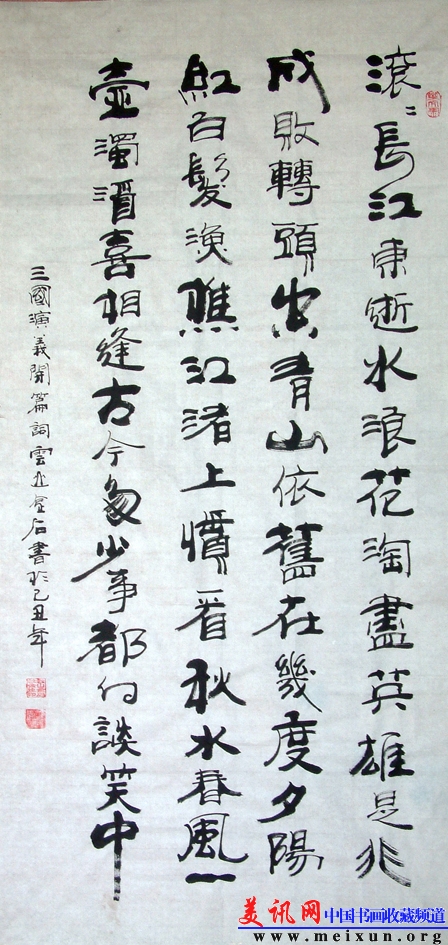 滚〻長江東逝水浪花淘盡英雄是非
成敗轉頭空青山依舊在幾度夕陽
紅白髮漁樵江渚上慣看秋水春風一
壺濁酒喜相逢古今多少事都付談笑中
三國演義開篇詞雲石書於己丑年
美讯网中国书画收藏频道
www.meixun.org